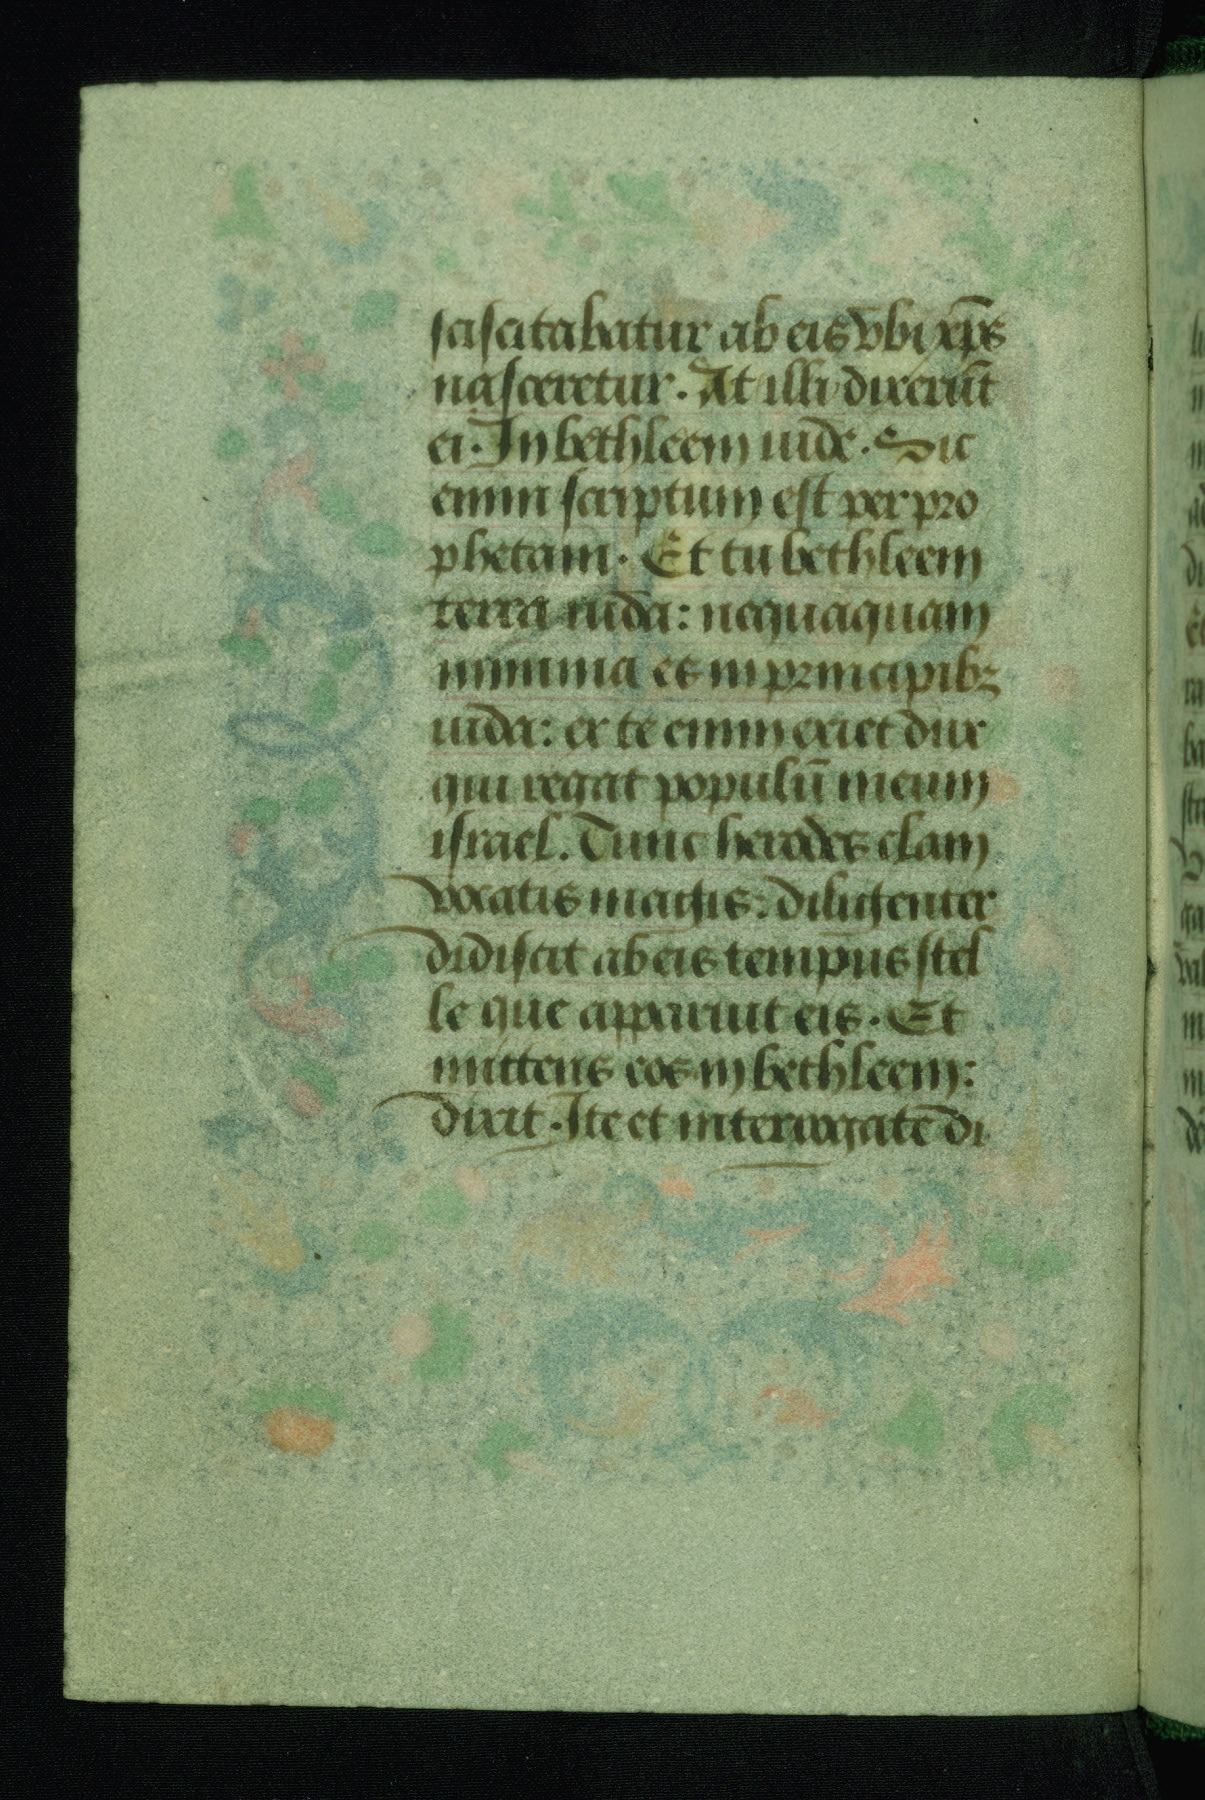 sciscitabatur ab eis vbi xp̄s
nasceretur. At illi dixerūt
ei. In bethleem iude. Sic
enim scriptum est per pro
phetam. Et tu bethleem
terra iuda: nequaquam
minima es in principibꝫ
iuda: ex te enim exiet dux
qui regat populū meum
israel. Tunc herodes clam
vocatis magis: diligenter
didiscit ab eis tempus stel
le que apparuit eis. Et
mittens eos in bethleem:
dixit. Ite et interrogate di